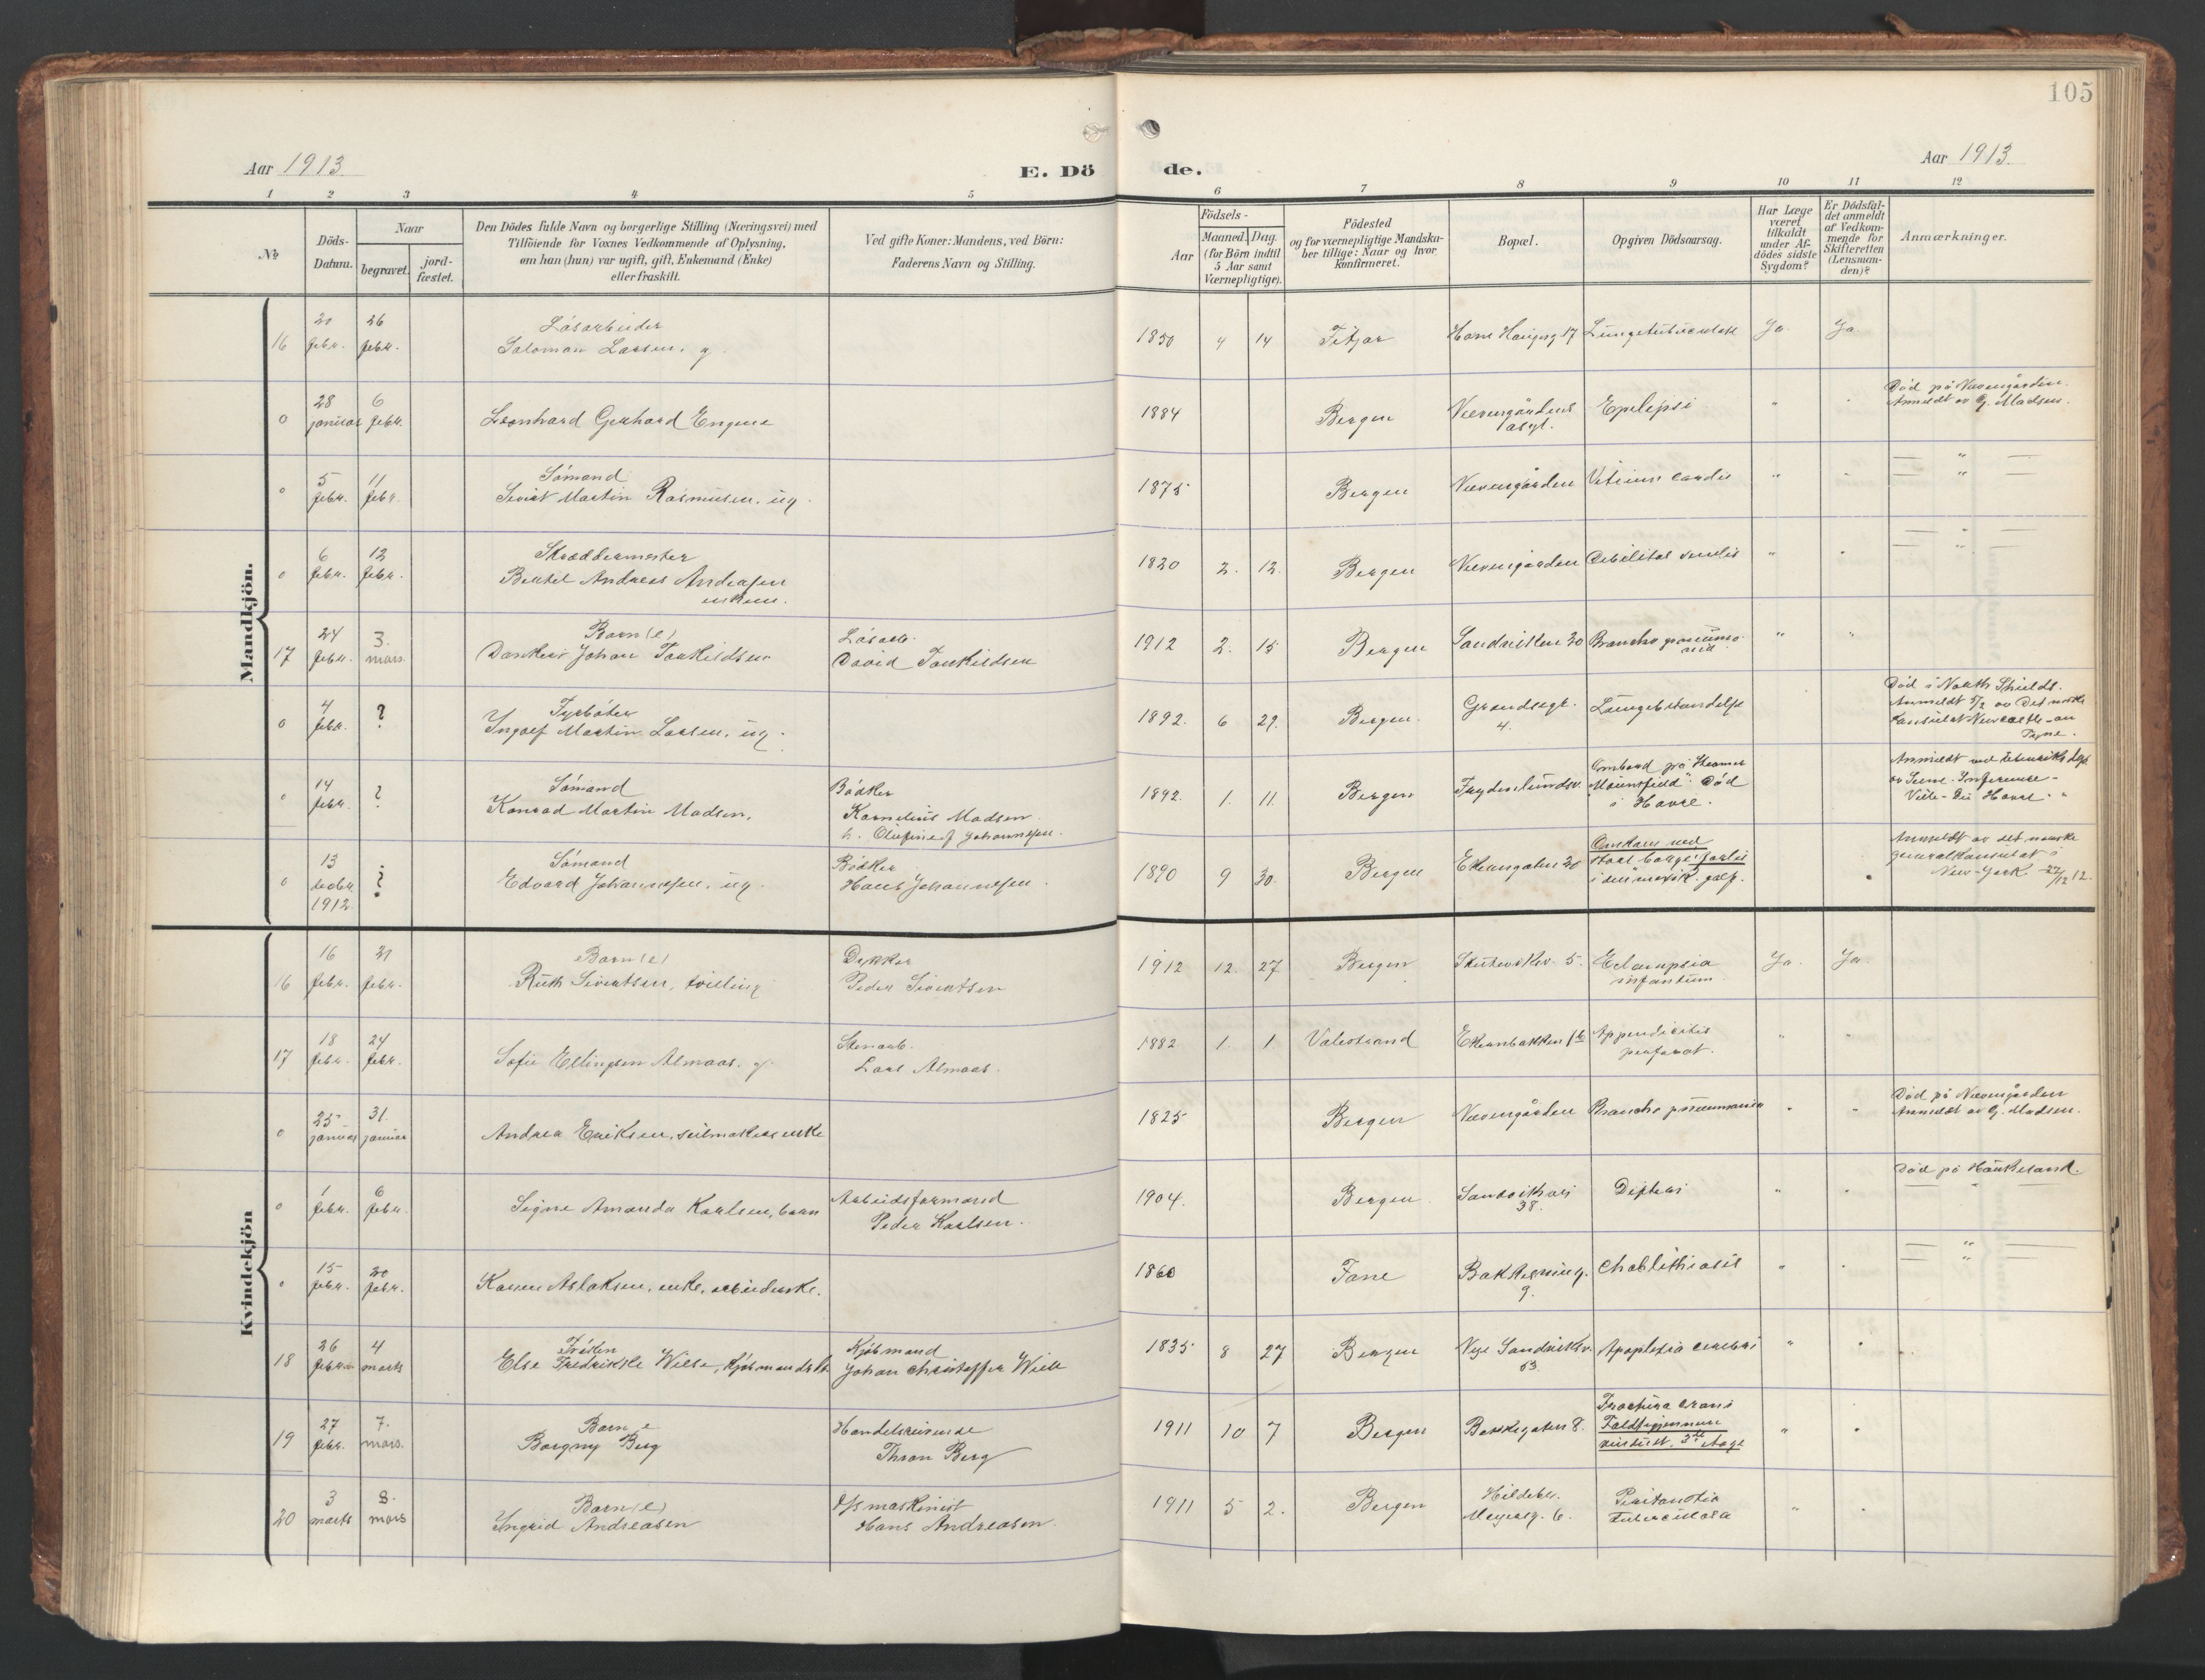 105
Aar 1913
E. Dö de.
Aar 1913.
1 2 3 4 5 6 7 8 9 10 11 12
№
Döds-
Datum.
Naar
begravet.
jord-
fæstet.
Den Dödes fulde Navn og borgerlige Stilling (Næringsvei) med
Tilföiende for Voxnes Vedkommende af Oplysning,
om han (hun) var ugift, gift, Enkemand (Enke)
eller fraskilt.
Ved gifte Koner: Mandens, ved Börn:
Faderens Navn og Stilling.
Födsels-
Aar
Maaned. Dag.
(for Börn indtil
5 Aar samt
Værnepligtige).
Födested
og for værnepligtige Mandska-
ber tillige: Naar og hvor
Konfirmeret.
Bopæl.
Opgiven Dödsaarsag.
Har Læge
været
tilkaldt
under Af-
dödes sidste
Sygdom?
Er Dödsfal-
det anmeldt
af Vedkom-
mende for
Skifteretten
(Lensman-
den)?
Anmærkninger.
Mandkjön.
16 20 febr. 26 febr.
Løsarbeider
Salomon Larsen. g.
1850 4 14 Fitjar Lungetuberculose Ja. Ja
0 28 januar 6 febr.
Leonhard Gerhard Engene
1884 Bergen Neevengårdens asyl. Epilepsi " "
Død på Neevengården.
Anmeldt av G. Madsen.
0 5 febr. 11 febr.
Sømand
Sivert Martin Rasmusen, ug.
1875 Bergen Neevengården Vitium cordis " "
— " —
— " —
0 6 febr. 12 febr.
Skræddermester
Bertel Andreas Andreasen
enkem.
1820 2. 12. Bergen Neevengården Debilitas senilis " "
— " —
— " —
17 24 febr. 3. mars
Barn (e)
Danker Johan Torkildsen
Løsarb.
David Torkildsen
1912 2. 15 Bergen Sandviken 30 " "
0 4 febr. ?
Fyrbøter
Ingolf Martin Larsen, ug.
1892. 6 29. Bergen. 4. Lungebetændelse
Død i North Shields.
Anmeldt 5/2 av Det norske
Konsulat Newcastle-on
Tyne.
0 14 febr. ?
Sømand
Konrad Martin Madsen.
Bødker
Kornelius Madsen
1892. 1. 11. Bergen Frydenlundsv.
Ombord på Steamer
"Mounsfield". Død
i Havre.
Anmeldt ved
av Seine-Inferieure-
Havre.
0 13 decbr. 1912 ?
Sømand
Edvard Johannesen, ug.
Bødker
Hans Johannesen.
1890 9 30. Bergen Ekrengaten 20
Omkom ved
i den mexik. golf.
Anmeldt av det norske
generalkonsulat i
New-York. 27/12 12.
Kvindekjön
16 16 febr. 21 febr.
Barn (e)
Ruth Sivertsen, tvilling
Dykker
Peder Sivertsen
1912 12. 27 Bergen Skutevikv. 5. Eclampsia
infantum Ja. Ja.
17 18 febr. 24 febr.
Sofie Ellingsen Almaas. g.
Stenarb.
Lars Almaas.
1882 1. 1 Valestrand Ekrenbakken 1b Appendicitis
perforat. " "
0 25 januar 31. januar
Andrea Eriksen, seilmakers enke
1825 Bergen Neevengården Broncho pneumonia " "
Død på Neevengården
Anmeldt av G. Madsen.
0 1 febr. 6 febr.
Signe Amanda Karlsen, barn
Arbeidsformand
Peder Karlsen.
1904. Bergen 38. Difteri " "
Død på Haukeland.
0 15 febr. 20 febr.
Karen Aslaksen, enke, arbeiderske.
1860 Fane 9. Cholelithiasis " "
— " —
— " —
18 26 februar 4 marts
Frøken
Else Fredrikke Wiese, kjøbmandsdt.
Kjøbmand
Johan Christoffer Wiese
1835 8 27 Bergen Nye Sandviksv.
53. Apoplexia cerebri " "
19 27 febr. 7. mars.
Barn e
Borgny Berg
Handelsreisende
Thron Berg
1911 10 7 Bergen Bakkegaten 8. Fractura cranii
Faldt igjennem
vinduet. 3die etage " "
20 3 marts 8. mars
Barn (e)
Ingrid Andreasen
D/s maskinist
Hans Andreasen.
1911 5 2. Bergen Hildebr.
Meyersg. 6. Peritonitis
Tuberculosa " "